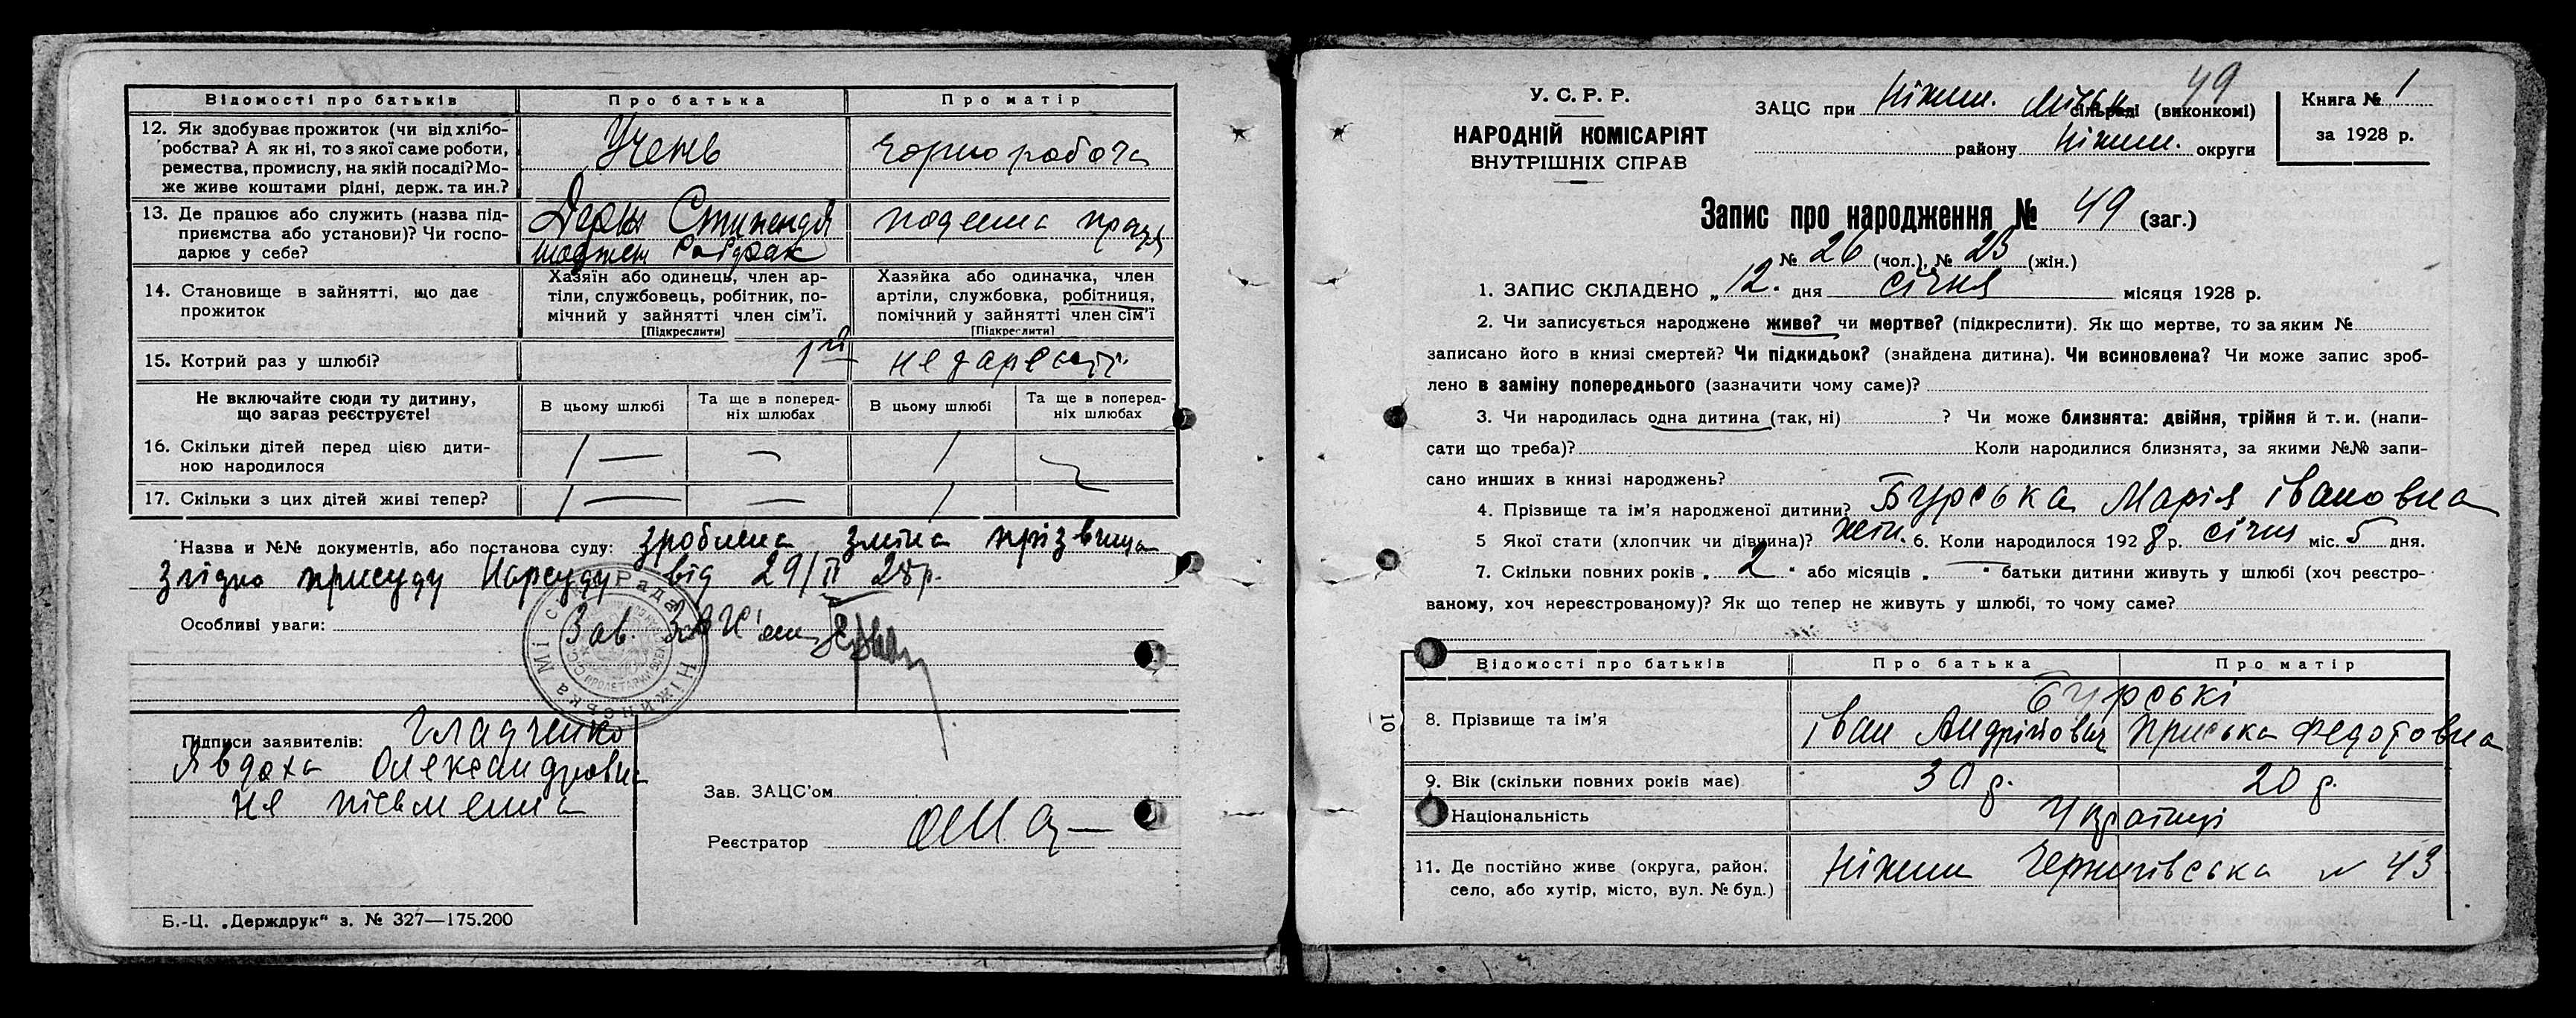 Відомості про батьків Про батька Про матір
12. Як здобуває прожиток (чи від хлібо-
робства? А як ні, то з якої саме роботи,
ремества, промислу, на якій посаді? Мо-
же живе коштами рідні, держ. та ин.?
Учень
Чорно робоча
13. Де працює або служить (назва під-
приємства або установи)? Чи госпо-
дарює у себе?
Держ Стипендія
Робфак
поденна праця
14. Становище в зайнятті, що дає
прожиток
Хазяїн або одинець, член ар-
тіли, службовець, робітник, по-
мічний у зайнятті член сім'ї.
[Підкреслити]
Хазяйка або одиначка, член
артіли, службовка, робітниця,
помічний у зайнятті член сім'ї
[Підкреслити]
15. Котрий раз у шлюбі?
1й
не зареєстр.
Не включайте сюди ту дитину,
що зараз реєструєте!
В цьому шлюбі
Та ще в поперед-
ніх шлюбах
В цьому шлюбі
Та ще в поперед-
ніх шлюбах
16. Скільки дітей перед цією дити-
ною народилося
1 — — 1 —
17. Скільки з цих дітей живі тепер?
1 — — 1
Назва и №№ документів, або постанова суду: зроблена зміна прізвища
згідно присуду Нарсуду від 29/II 28р.
Особливі уваги:
Зав.
Ніжинська Міська Рада
Підписи заявителів: Гладченко
Явдоха Олександровна
не письменна
Зав. ЗАЦС'ом
Реєстратор
Б.-Ц. „Держдрук“ з. № 327—175.200
У. С. Р. Р.
НАРОДНІЙ КОМІСАРІЯТ
ВНУТРІШНІХ СПРАВ
49
ЗАЦС при Ніжин. Міськ сільраді (виконкомі)
району Ніжин. округи
Книга № 1
за 1928 р.
Запис про народження № 49 (заг.)
№ 26 (чол.), № 23 (жін.)
1. ЗАПИС СКЛАДЕНО „12. дня січня місяця 1928 р.
2. Чи записується народжене живе? чи мертве? (підкреслити). Як що мертве, то за яким №
записано його в книзі смертей? Чи підкидьок? (знайдена дитина). Чи всиновлена? Чи може запис зроб-
лено в заміну попереднього (зазначити чому саме)?
3. Чи народилась одна дитина (так, ні) ? Чи може близнята: двійня, трійня й т. и. (напи-
сати що треба)? Коли народилися близнята, за якими №№ запи-
сано инших в книзі народжень?
4. Прізвище та ім'я народженої дитини? Бурська Марія Івановна
5 Якої стати (хлопчик чи дівчина)? жін. 6. Коли народилося 1928 р. січня міс. 5 дня.
7. Скільки повних років „ 2 “ або місяців „ — “ батьки дитини живуть у шлюбі (хоч реєстро-
ваному, хоч нереєстрованому)? Як що тепер не живуть у шлюбі, то чому саме?
10
Відомості про батьків Про батька Про матір
8. Прізвище та ім'я
Бурські
Іван Андрійович Приська Федотовна
9. Вік (скільки повних років має) 30 р. 20 р.
Національність Українці
11. Де постійно живе (округа, район,
село, або хутір, місто, вул. № буд.)
Ніжин Чернигівська № 43